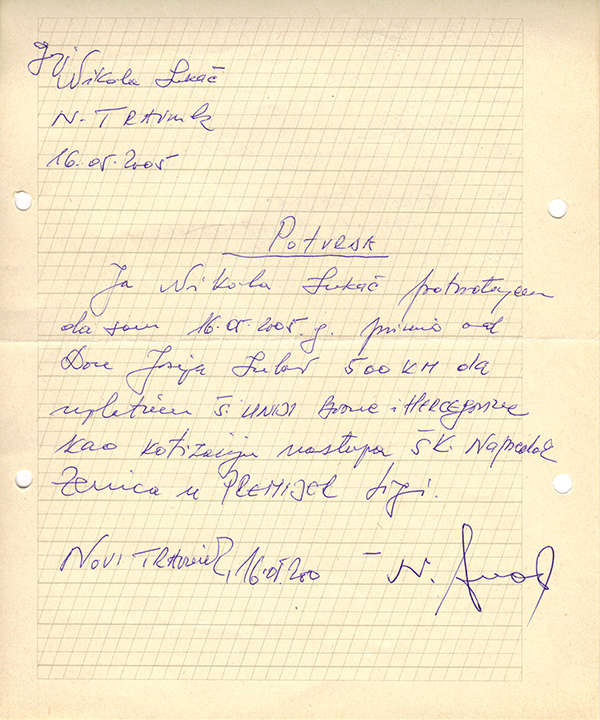 Nikola Lukač
N. TRAVNIK
16.05.2005
POTVRDA
Ja Nikola Lukač potvrđujem
da sam 16.05.2005.g. primio od
Don Josipa 500 KM da
uplatim Š. UNIJI Bosne i HERCEGOVINE
kao kotizaciju nastupa ŠK. Napredak
Zenica u PREMIJER ligi.
NOVI TRAVNIK, 16.05.200
N.